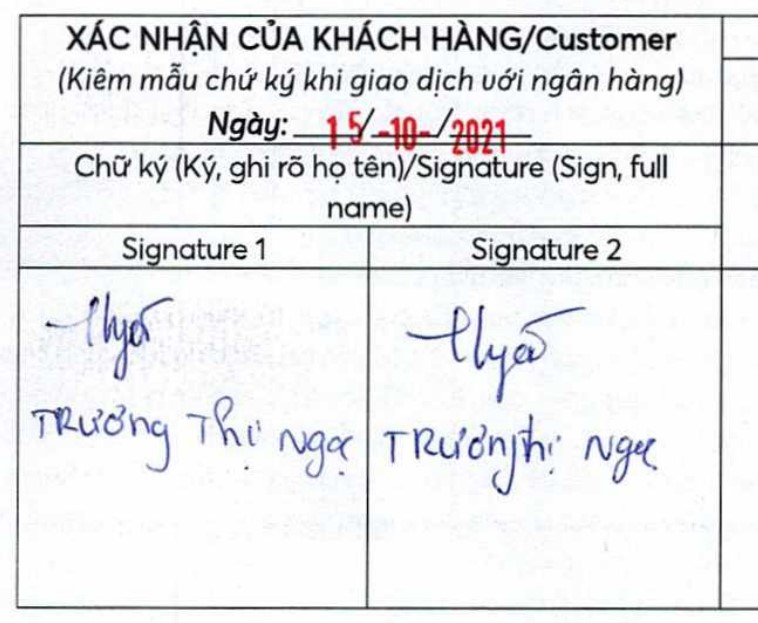 XÁC NHẬN CỦA KHÁCH HÀNG/Customer
(Kiêm mẫu chứ ký khi giao dịch với ngân hàng)
Ngày: 15/-10-/2021
Chữ ký (Ký, ghi rõ họ tên)/Signature (Sign, full
name)
Signature 1 Signature 2
Trương Thị Trương Thị